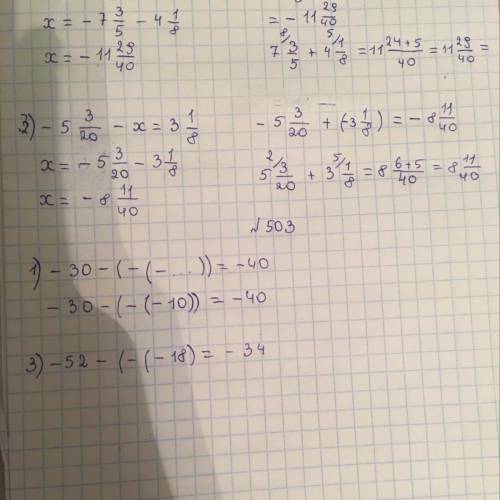 x = - 7 3/5 - 4 1/8
x = - 11 29/40
= - 11 29/40
7 ⁸/ 3/5 + 4 ⁵/ 1/8 = 11 24+5/40 = 11 29/40 =
2) - 5 3/20 - x = 3 1/8
x = - 5 3/20 - 3 1/8
x = - 8 11/40
- 5 3/20 + (-3 1/8) = - 8 11/40
5 ²/ 3/20 + 3 ⁵/ 1/8 = 8 6+5/40 = 8 11/40
№ 503
1) - 30 - (- (- ...)) = -40
- 30 - (- (- 10)) = -40
3) - 52 - (- (- 18) = - 34